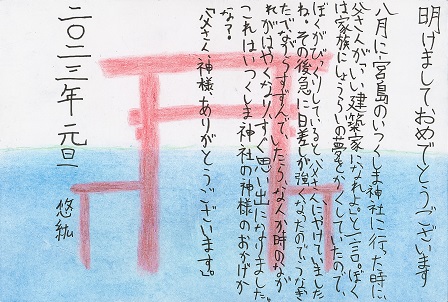 明けましておめでとうございます
八月に宮島のいつくしま神社に行った時に、
父さんが「いい建築家になれよ」と一言。ぼく
は家族にしょうらいの夢をかくしていたので、
ぼくがびっくりしていると、父さんにやけていました
ね。その後急に日差しが強くなったので、うなぎ
たべながらすずんで、したら、なんか時のなが
れがはやくなり、すぐ思い出になりました。
これはいつくしま神社の神様のおかげか
な？
「父さん、神様、ありがとうございます。」
二〇二三年 元旦
悠紘